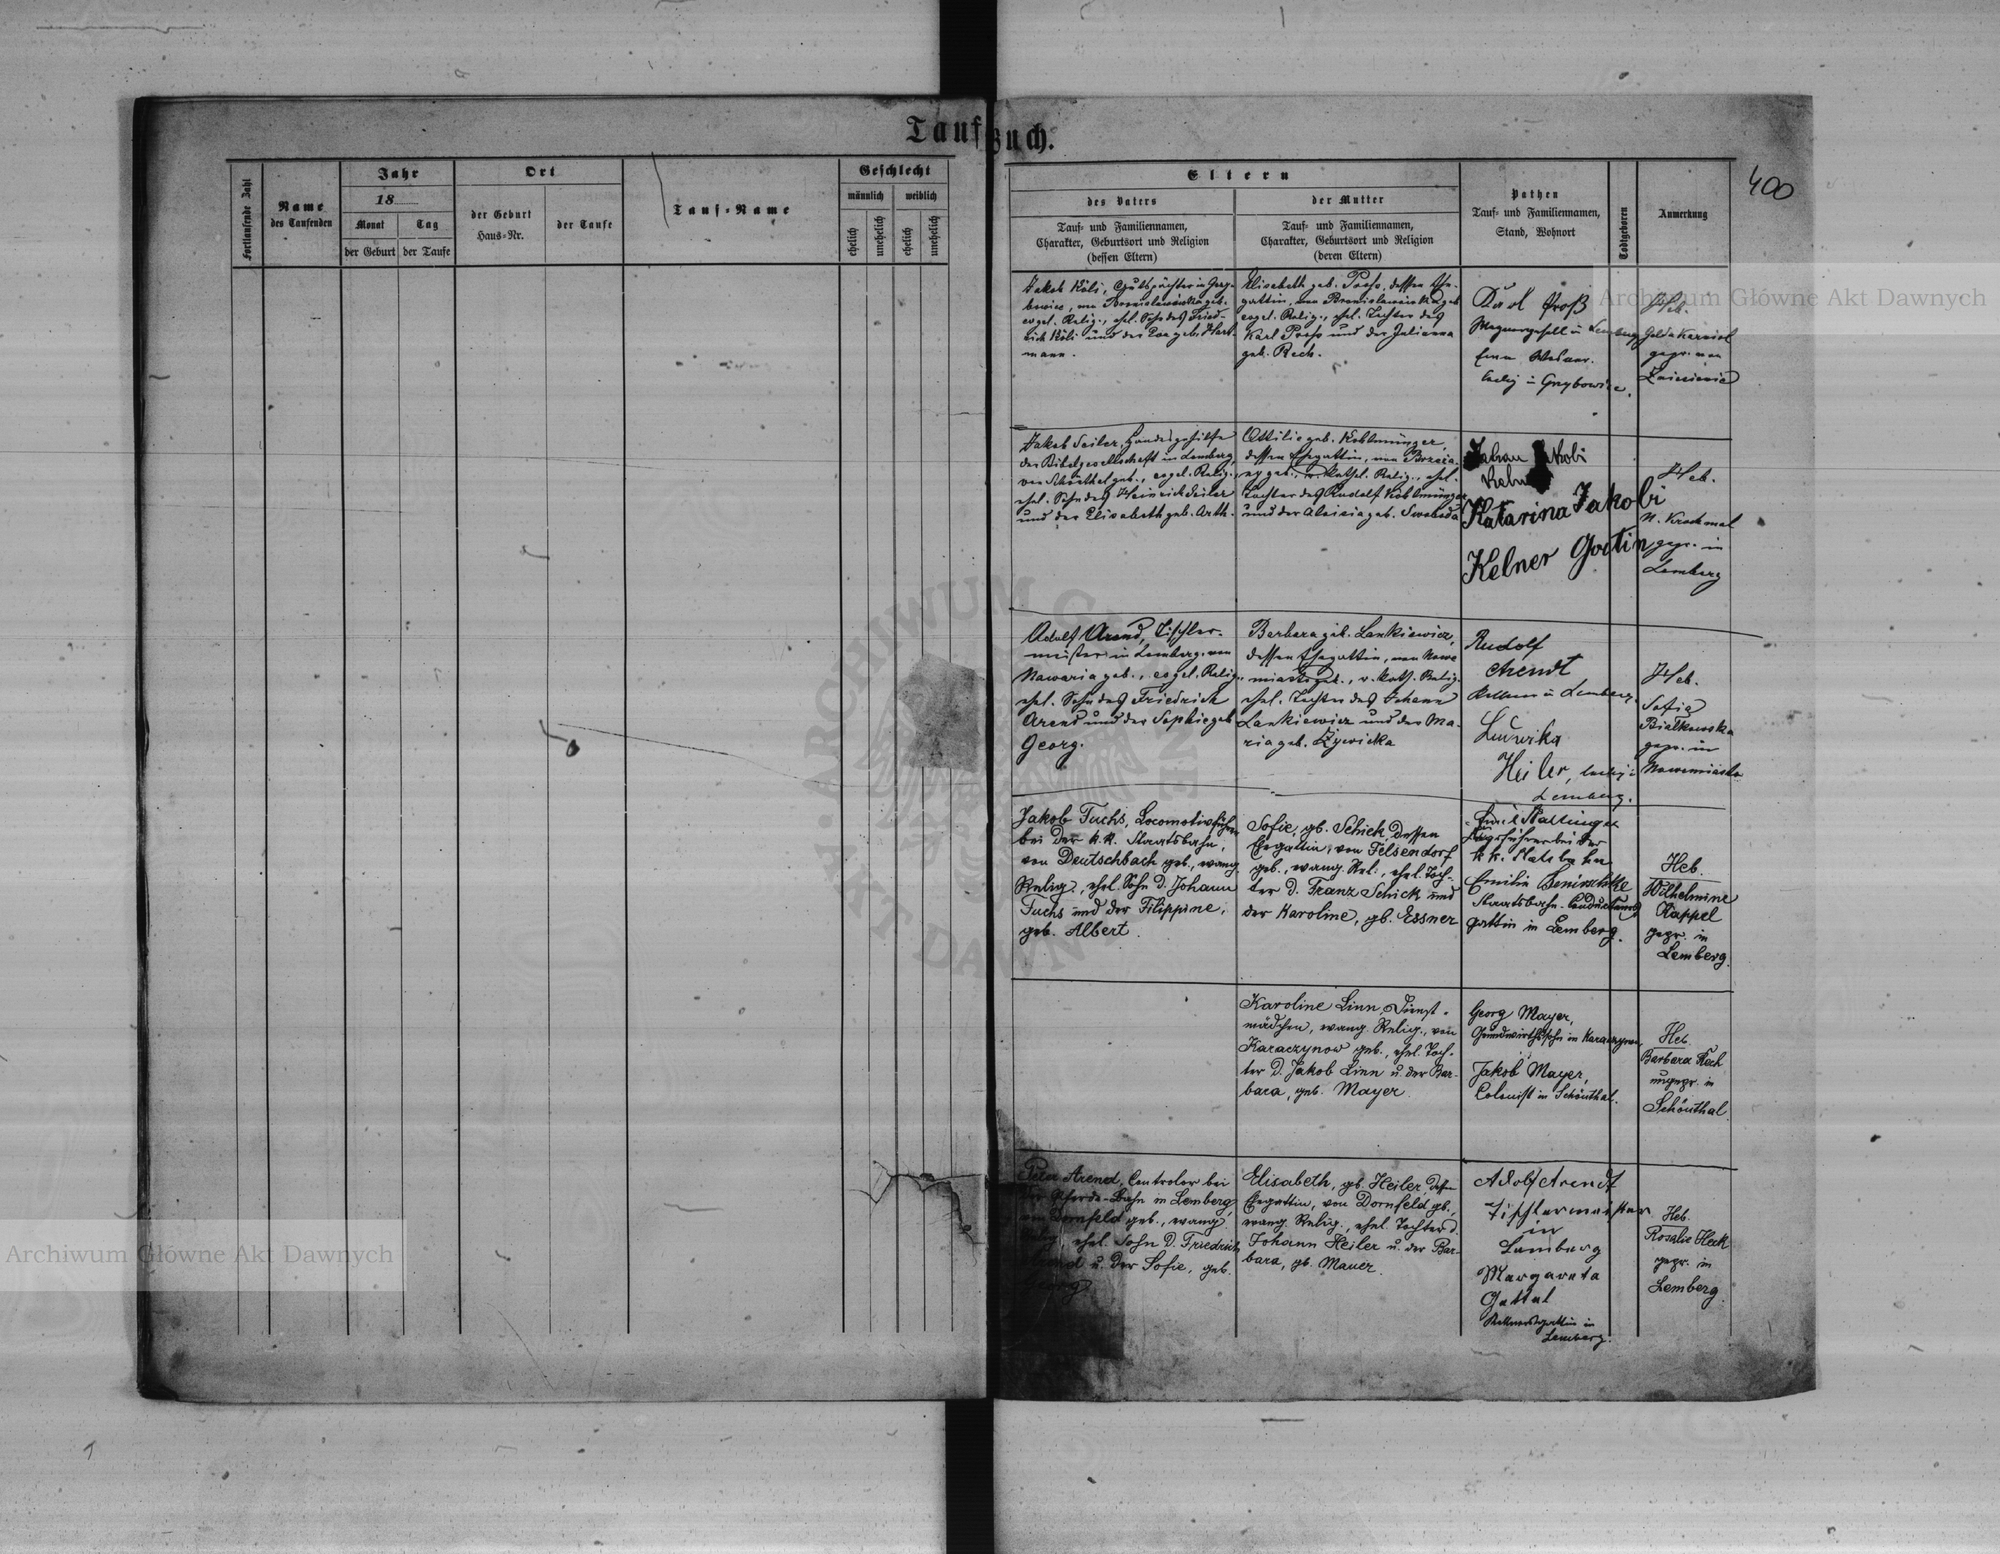 Taufbuch.
400
Fortlaufende Zahl
Name
des Taufenden
Jahr
18
Monat
Tag
der Geburt
der Taufe
Ort
der Geburt
Haus-Nr.
der Taufe
Tauf-Name
Geschlecht
männlich
weiblich
ehelich
unehelich
ehelich
unehelich
Eltern
des Vaters
Tauf- und Familiennamen,
Charakter, Geburtsort und Religion
(dessen Eltern)
der Mutter
Tauf- und Familiennamen,
Charakter, Geburtsort und Religion
(deren Eltern)
Pathen
Tauf- und Familiennamen,
Stand, Wohnort
Todtgeboren
Anmerkung
Jakob Köli, Gutspächter in
geb.
evgel. Relig., ehel. Sohn des Fried-
rich Köli und der geb. Hart-
mann.
Elisabeth geb. Pross, dessen Ehe-
gattin, von geb.
evgel. Relig., ehel. Tochter des
Karl Pross und der Julianna
geb. Rech.
Karl Proß
in Lemberg
ledig in Grzybowice.
Heb.
gepr. von
Jakob Seiler,
der Bibelgesellschaft in Lemberg,
von geb., evgel. Relig.,
ehel. Sohn des Heinrich Seiler
und der Elisabeth geb. Arth.
Ottilie geb. Koblmünzer,
dessen Ehegattin, von
geb., r. kathol. Relig., ehel.
Tochter des Rudolf Koblmünzer
und der Aloisia geb. Swoboda
Jakobi
Katarina Jakobi
Kelner Gottin
Heb.
N. Krochmal
gepr. in
Lemberg
Adolf Arend, Tischler-
meister in Lemberg, von
Nawaria geb., evgel. Relig.,
ehel. Sohn des Friedrich
Arend und der Sophie geb.
Georg.
Barbara geb. Lankiewicz,
dessen Ehegattin, von Nowe
miasto geb., r. kath. Relig.
ehel. Tochter des Johann
Lankiewicz und der Ma-
ria geb. Żywicka
Rudolf
Arendt
Kellner in Lemberg.
Ludwika
Heiler, ledig in
Lemberg.
Heb.
Sofia
Białkowska
gepr. in
Nowemiasto
Jakob Fuchs, Locomotivführer
bei der k.k. Staatsbahn,
von Deutschbach geb., evang.
Relig., ehel. Sohn d. Johann
Fuchs und der Filippine,
geb. Albert.
Sofie, gb. Schick, dessen
Ehegattin, von Felsendorf
geb., evang. Rel., ehel. Toch-
ter d. Franz Schick und
der Karoline, gb. Essner
Zugsführer bei der
k.k. Staatsbahn
Emilie
Staatsbahn-Conducteurs-
gattin in Lemberg.
Heb.
Wilhelmine
Kappel
gepr. in
Lemberg.
Karoline Linn, Dienst-
mädchen, evang. Relig., von
Karaczynow geb., ehel. Toch-
ter d. Jakob Linn u. der Bar-
bara, geb. Mayer.
Georg Mayer,
Grundwirthssohn in Karaczynow,
Jakob Mayer,
Colonist in Schönthal.
Heb.
Barbara Koch
ungepr. in
Schönthal
Peter Arend, Controlor bei
der Pferde-Bahn in Lemberg,
von Dornfeld geb., evang.
Relig., ehel. Sohn d. Friedrich
Arend u. der Sofie, geb.
Georg
Elisabeth, gb. Heiler, dessen
Ehegattin, von Dornfeld gb.,
evang. Relig., ehel. Tochter d.
Johann Heiler u. der Bar-
bara, gb. Mauer.
Adolf Arendt
Tischlermeister
in
Lemberg
Margareta
Gattal
Kellnersgattin in
Lemberg.
Heb.
Rosalie Heck
gepr. in
Lemberg.
Archiwum Główne Akt Dawnych
Archiwum Główne Akt Dawnych